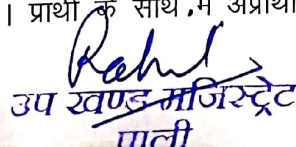 । प्रार्थी के साथ .में अप्रार्थी
Rahul
उप खण्ड मजिस्ट्रेट
पाली